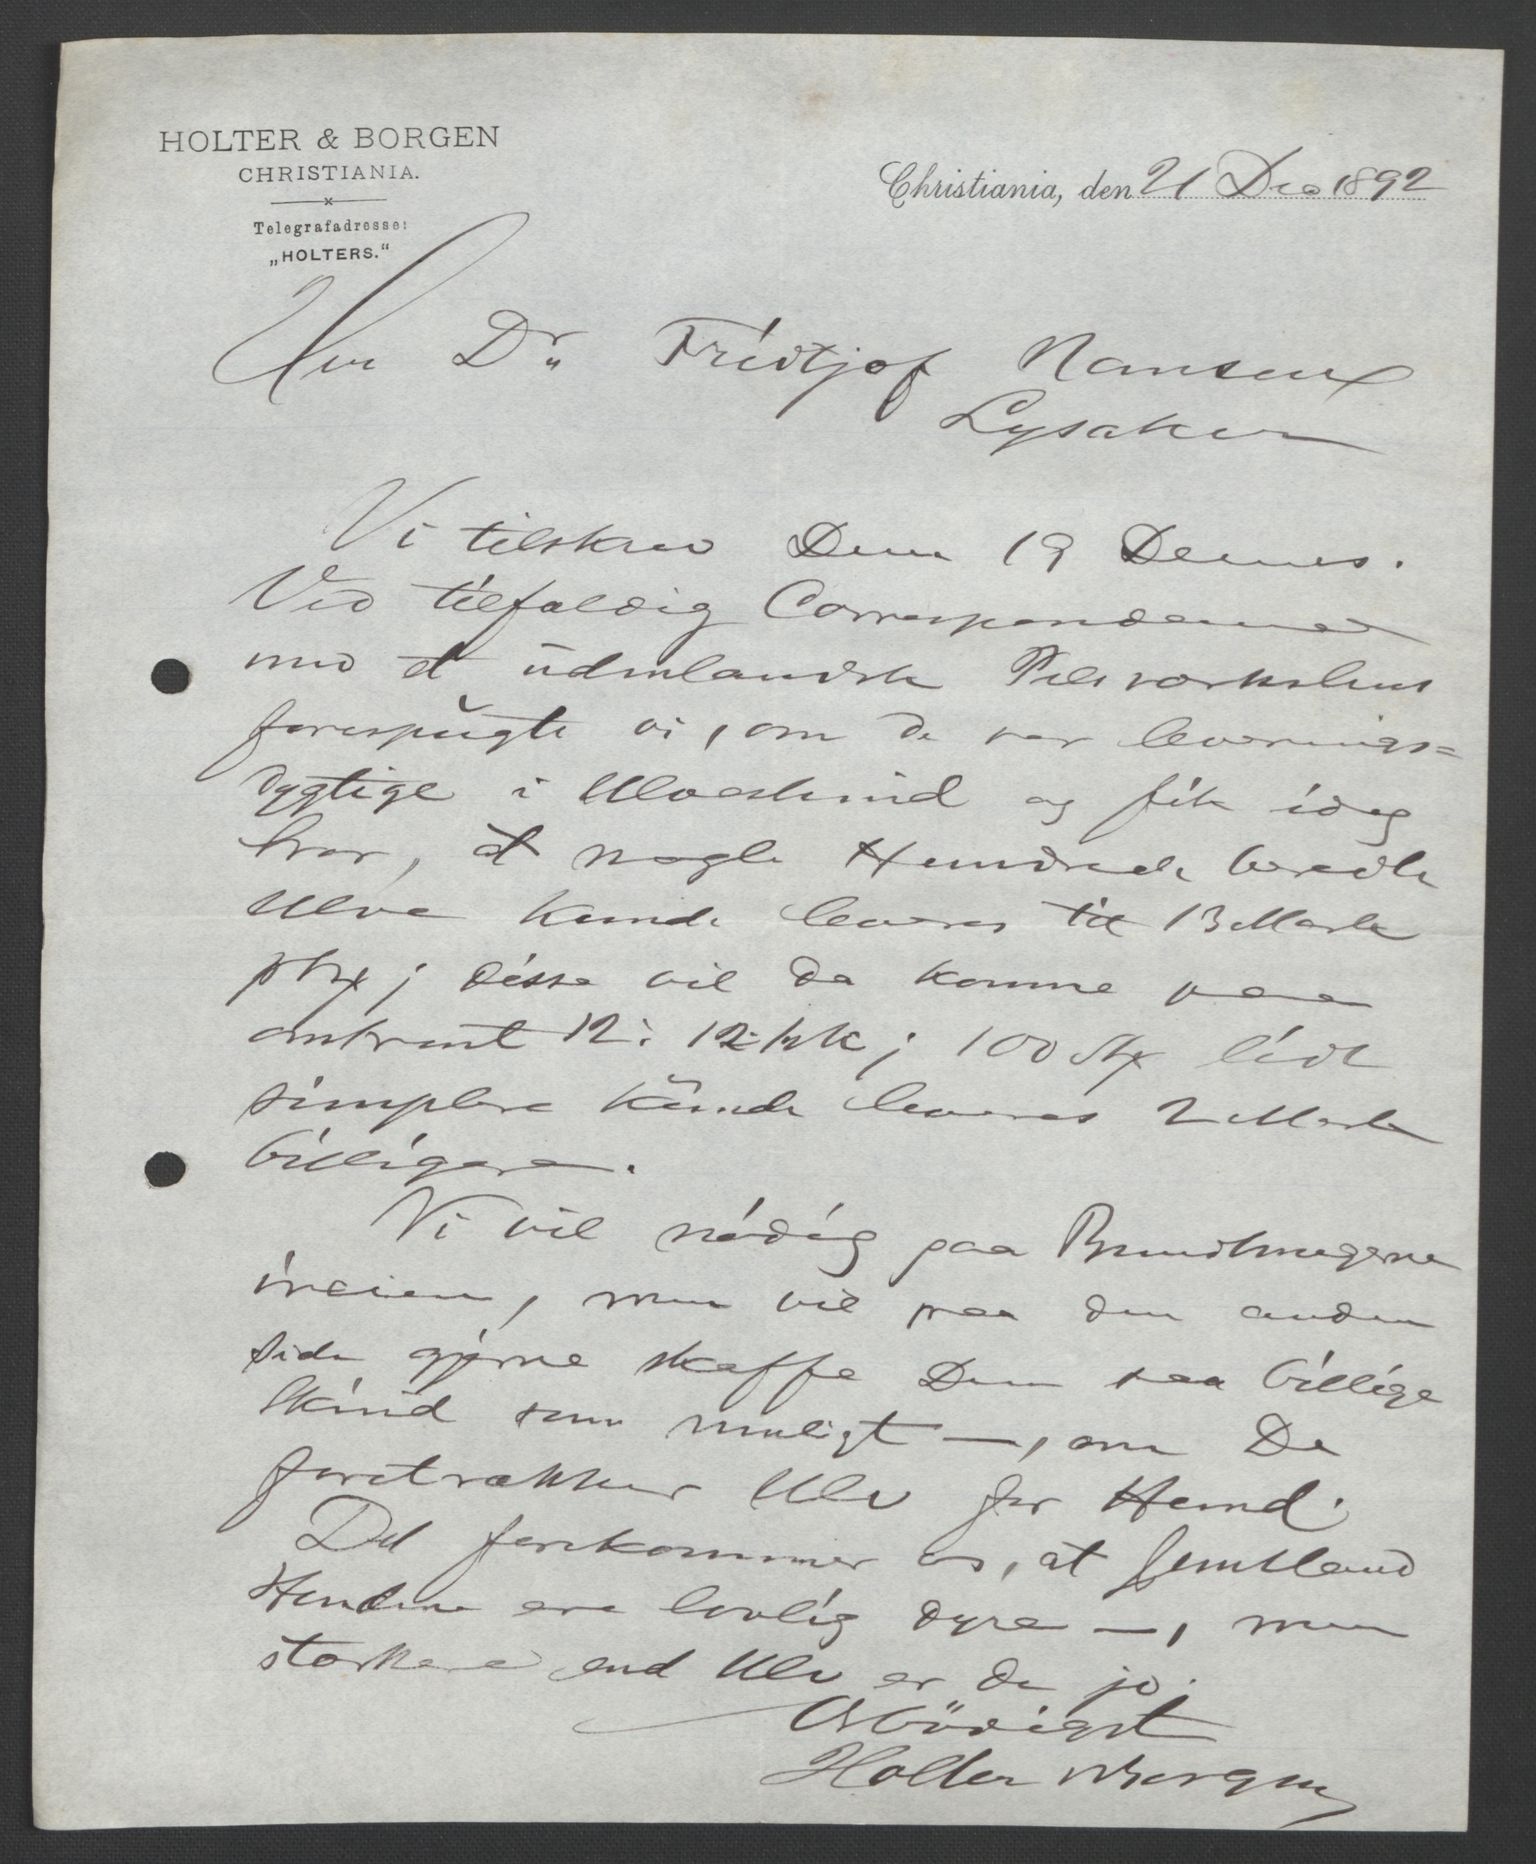 HOLTER & BORGEN
CHRISTIANIA.
Telegrafadresse:
„HOLTERS.“
Christiania, den 21 Dec 1892
Herr Dr. Fridtjof Nansen
Lysaker
Vi tilskrev Dem 19 Dennes.
Ved tilfældig Correspondence
med et udenlandsk Pelsværkshus
forespurgte vi, om de var leverings=
dygtige i Ulveskind og fik idag
Svar, at nogle Hundrede beredte
Ulve kunde leveres til 13 Mark
pr Stk; disse vil da komme paa
omtrent 12: 12½ Kr; 100 Stk lidt
simplere kunde leveres 2 Mark
billigere.
Vi vil nødig gaa Brundtmagerne
iveien, men vil paa den anden
side gjerne skaffe Dem saa billige
Skind som muligt —, om De
foretrækker Ulv for Hund.
Det forekommer os, at Jemtland
Hundene ere lovlig dyre —, men
stærkere end Ulv er de jo.
Ærbödigst
Holter & Borgen